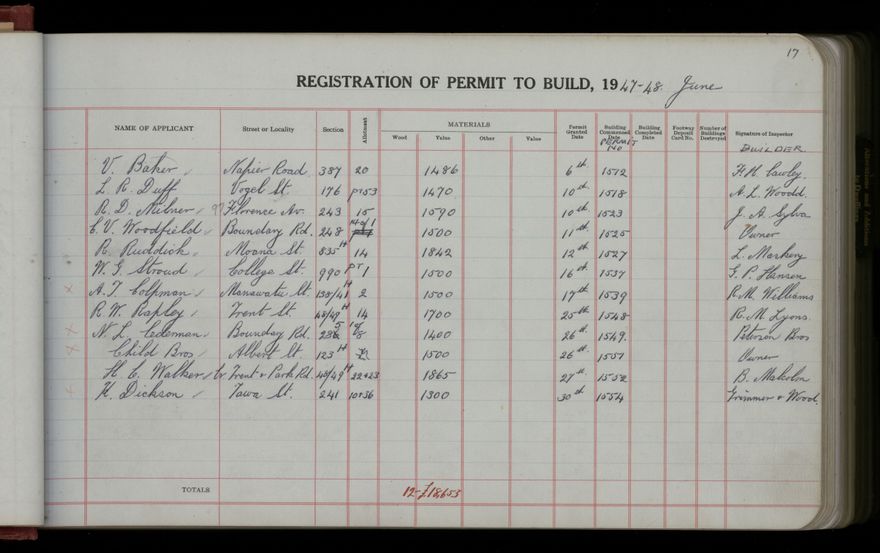 17
REGISTRATION OF PERMIT TO BUILD, 1947-48. June
NAME OF APPLICANT Street or Locality Section Allotment MATERIALS Permit Granted Date Building Commenced Date Building Completed Date Footway Deposit Card No. Number of Buildings Destroyed Signature of Inspector
Wood Value Other Value PERMIT No BUILDER
V. Baker Napier Road 387 20 1486 6th 1512 F. H. Cawley.
L. R. Duff Vogel St. 176 pt 53 1470 10th 1518 A. L. Woodd.
R. D. Milner 97 Florence Av. 243 15 1590 10th 1523 J. A. Sylva
E. V. Woodfield Boundary Rd. 248 pt of 1 1500 11th 1525 Owner
R. Ruddick Moana St. 835 H 14 1842 12th 1527 L. Markery
W. G. Stroud College St. 990 pt 1 1500 16th 1537 G. P. Hansen
x A. T. Colpman Manawatu St. 130/41 H 2 1500 17th 1539 R. M. Williams
R. W. Rapley Trent St. 48/49 H 14 1700 25th 1548 R. M. Lyons.
x N. L. Cederman Boundary Rd. 1400 26th 1549. Peterson Bros
x Child Bros Albert St. 123 H 1500 26th 1551 Owner
H. C. Walker Cr Trent & Park Rd. 48/49 H 22+23 1865 27th 1552 B. Malcolm
K. Dickson Tawa St. 241 1300 30th 1554 Trimmer & Wood.
TOTALS 12-£18,653